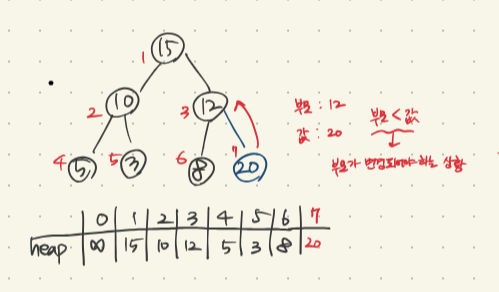 15
1
10
2
12
3
5
4
3
5
8
6
20
7
부모 : 12
값 : 20
부모 < 값
부모가 변경되어야 하는 상황
0 1 2 3 4 5 6 7
heap ∞ 15 10 12 5 3 8 20